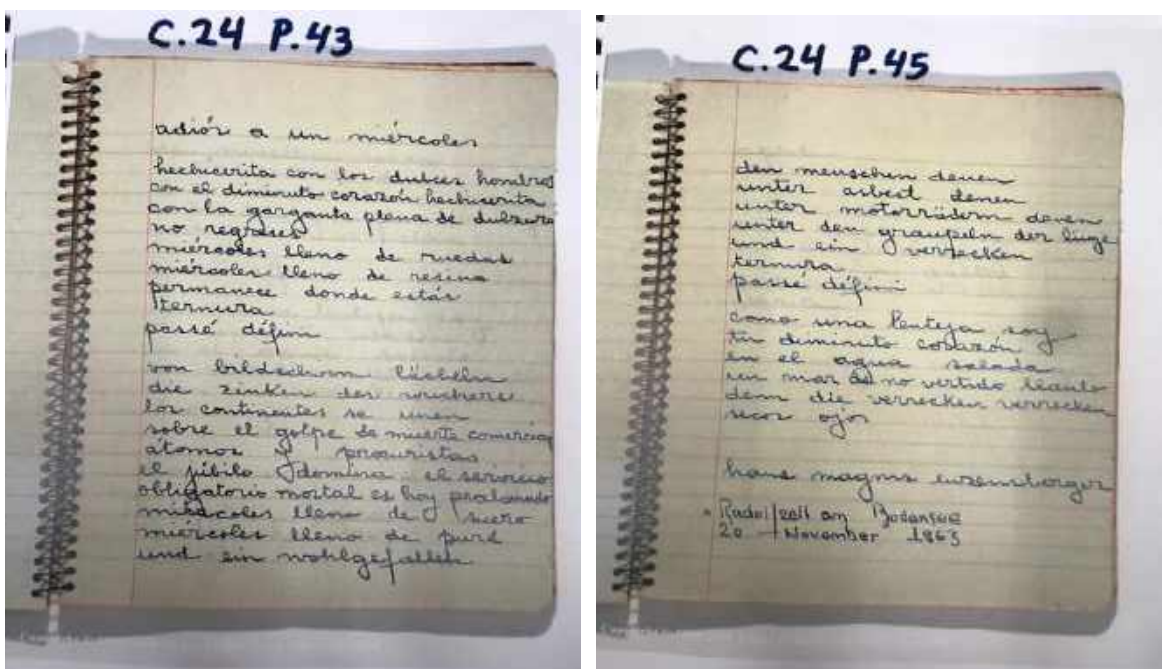 C.24 P.43
adiós a un miércoles
hechicerita con los dulces hombros
con el diminuto corazón hechicerita
con la garganta plena de dulzura
no regreses
miércoles lleno de ruedas
miércoles lleno de resina
permanece donde estás
ternura
passé défini
von bildschirm lächeln
die zinken der wucherer
los continentes se unen
sobre el golpe de muerte comercial
átomos y procuristas
el júbilo domina el servicio
obligatorio mortal es hoy proclamado
miércoles lleno de suero
miércoles lleno de puré
und ein wohlgefallen
C.24 P.45
den menschen denen
unter arbeit denen
unter motorrädern denen
unter den graupeln der lüge
und ein verrecken
ternura
passé défini
como una lenteja soy
tu diminuto corazón
en el agua salada
un mar de no vertido llanto
dem die verrecken verrecken
secos ojos
hans magnus enzensberger
Radolfzell am Bodensee
20 November 1963